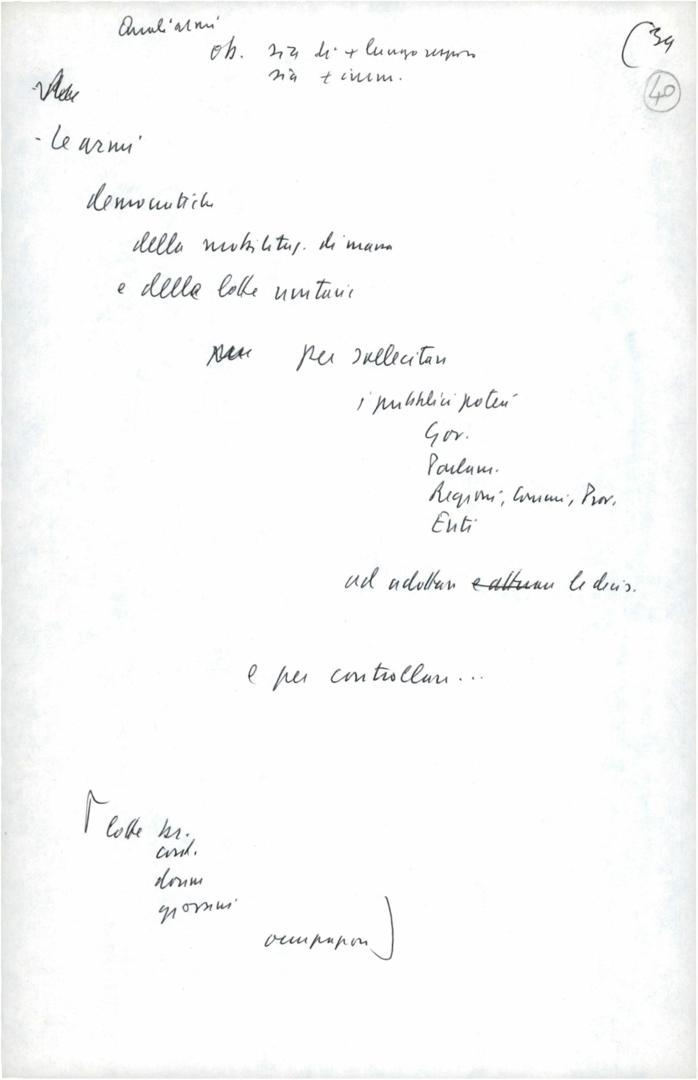 Quali armi
ob. sia di + lungo respiro
sia + imm.
(39
40
- le armi
democratiche
della mobilitaz. di massa
e della lotta unitaria
per sollecitare
i pubblici poteri
Gov.
Parlam.
Regioni, Comuni, Prov.
Enti
ad adottare e attuare le decis.
e per controllare...
lotte
cont.
donne
giovani
occupazione